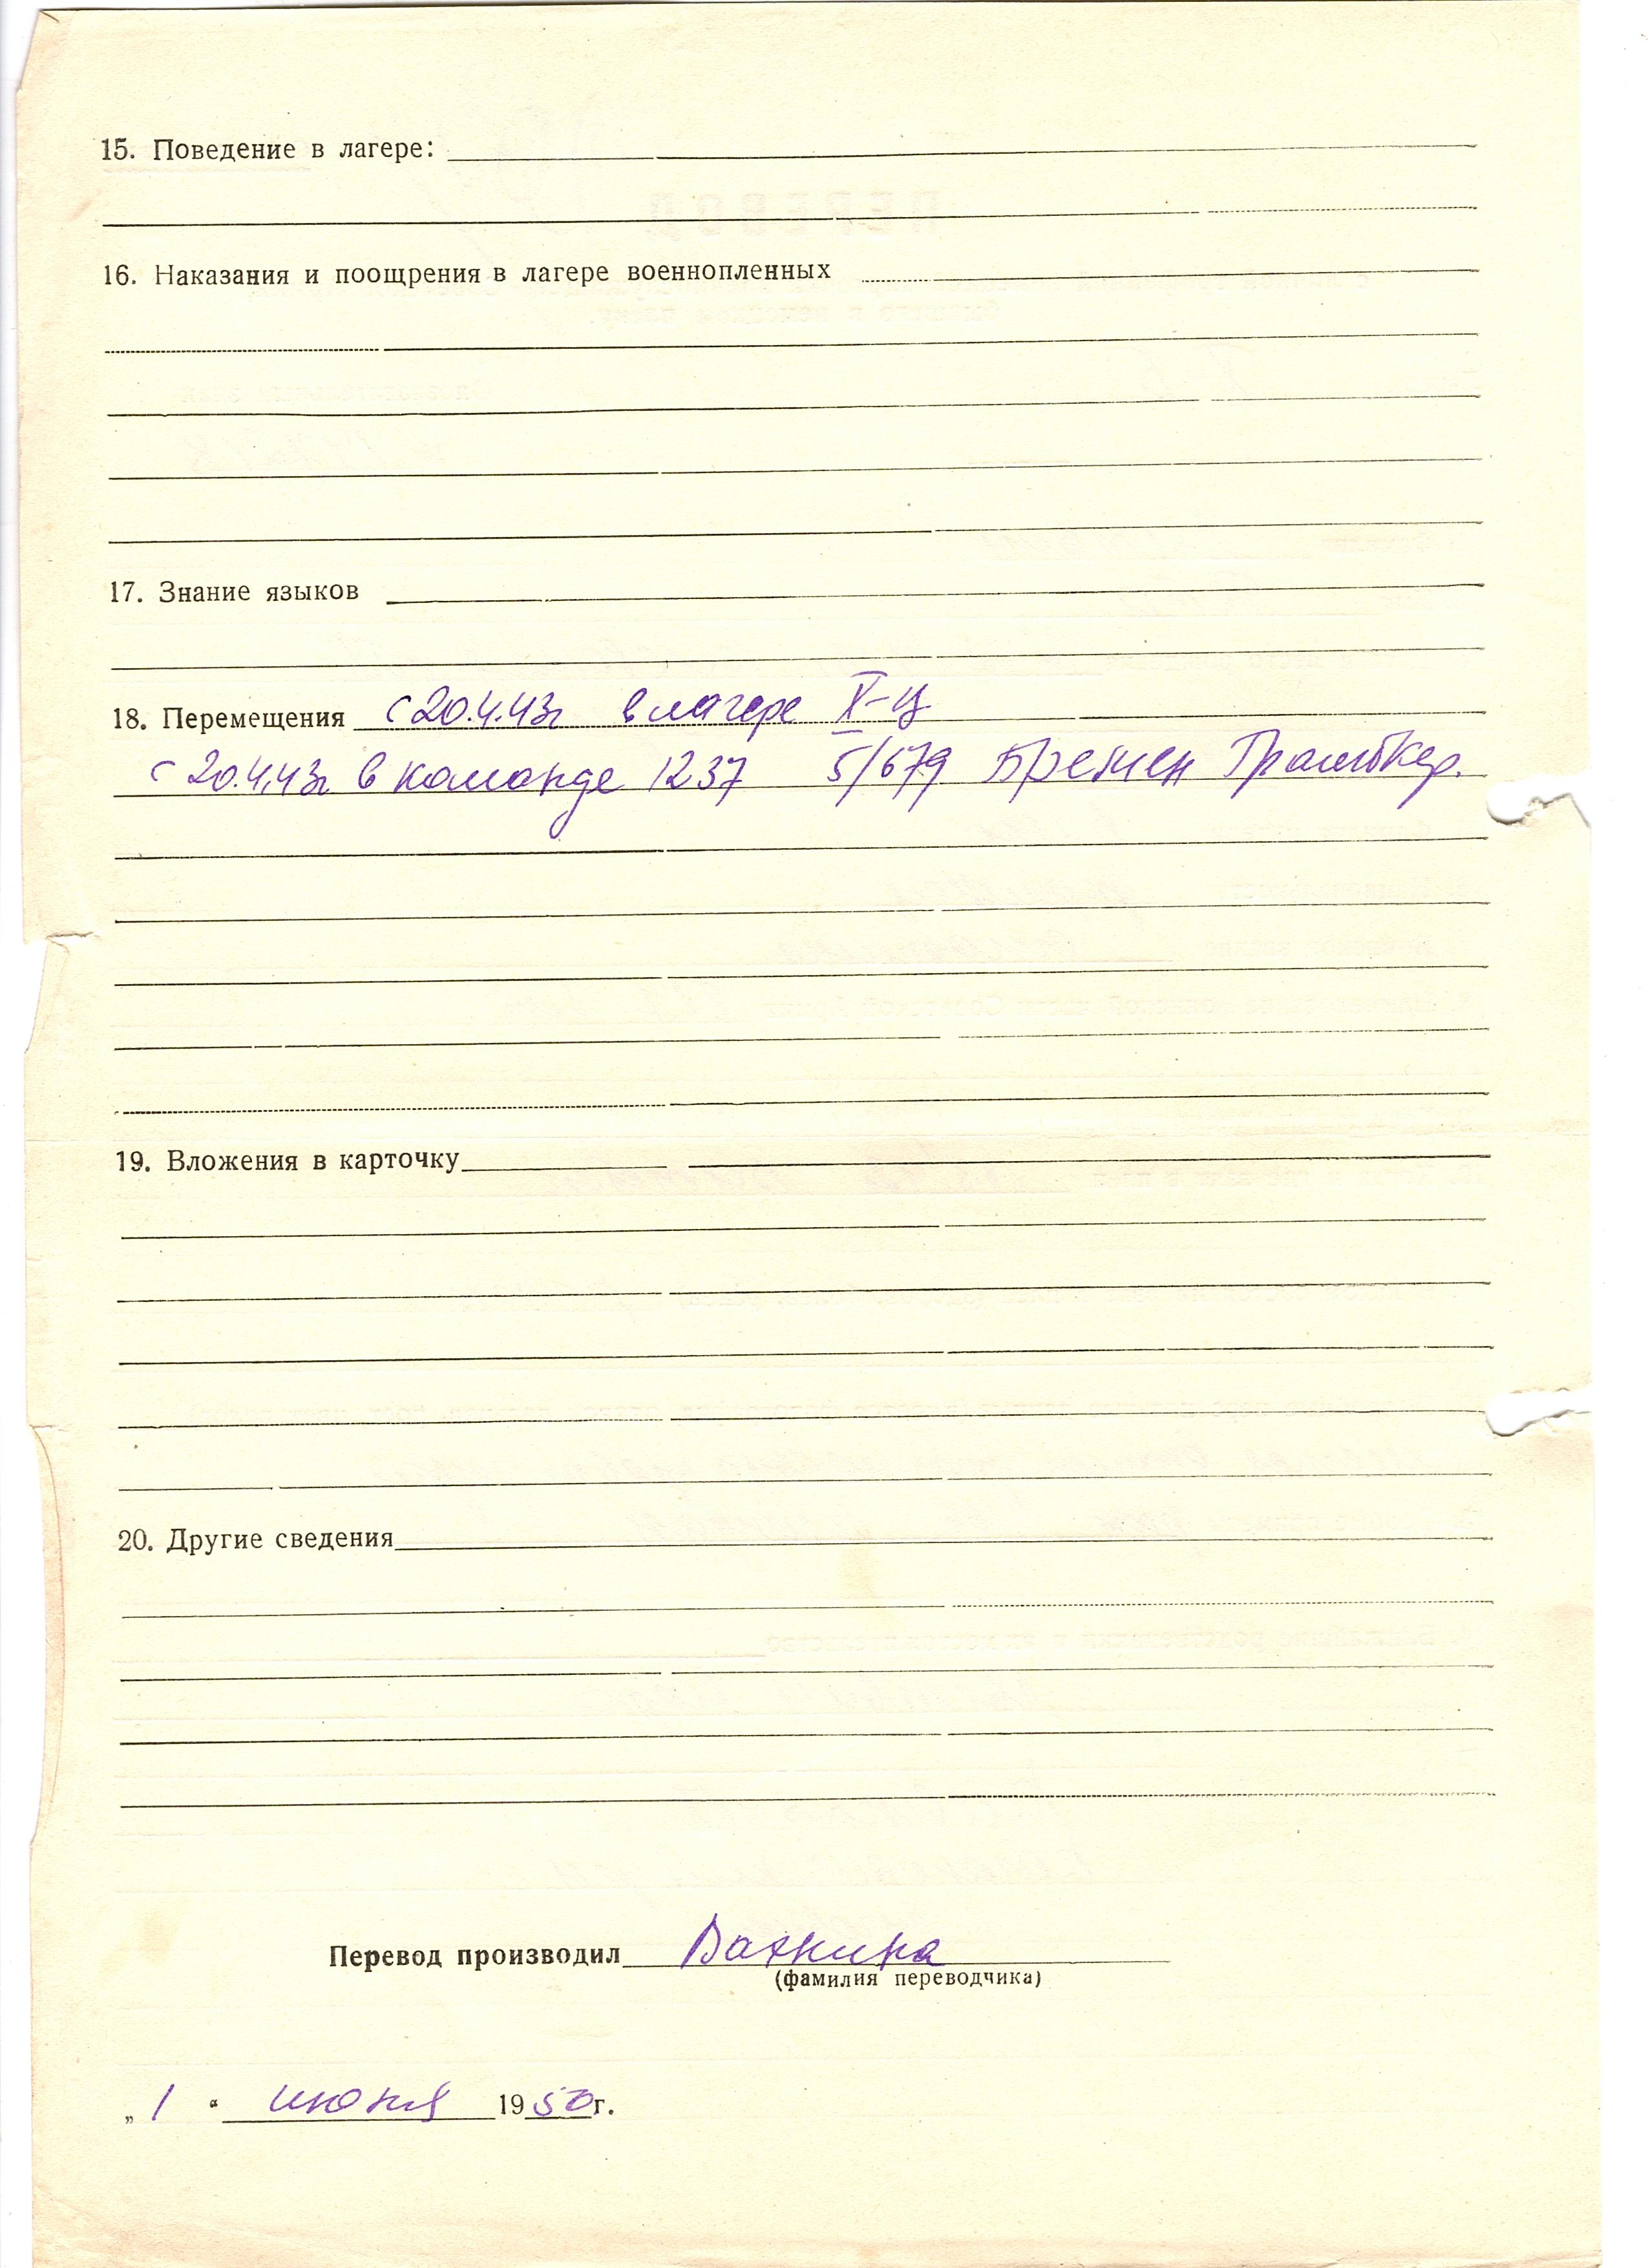 15. Поведение в лагере:
16. Наказания и поощрения в лагере военнопленных
17. Знание языков
18. Перемещения с 20.4.43г в лагере X-Ц
с 20.4.43г в команде 1237 5/679 Бремен Грамбкер.
19. Вложения в карточку
20. Другие сведения
Перевод производил
(фамилия переводчика)
„ 1 “ июня 1950г.